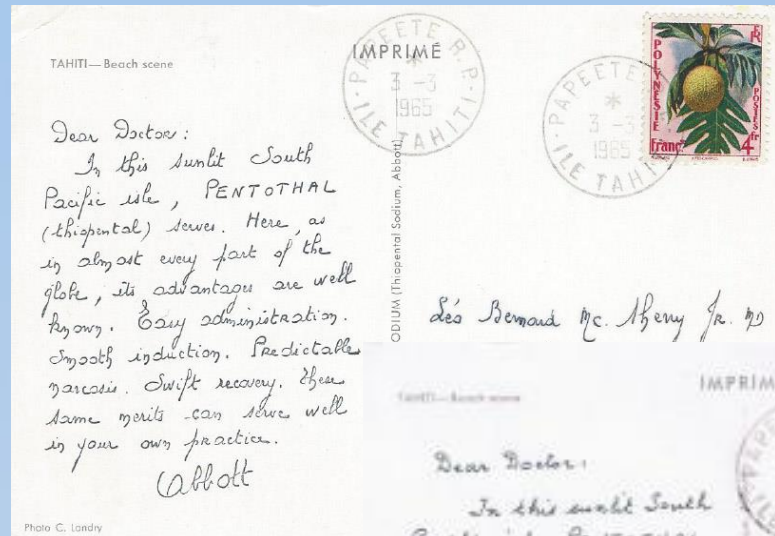 TAHITI—Beach scene
IMPRIMÉ
PAPEETE R.P.
3 -3
1965
ILE TAHITI
PAPEETE
3 -3
1965
ILE TAHITI
POLYNÉSIE
Franç.se
RF
POSTES
4fr
Dear Doctor:
In this sunlit South
Pacific isle, PENTOTHAL
(thiopental) serves. Here, as
in almost every part of the
globe, its advantages are well
known. Easy administration.
Smooth induction. Predictable
narcosis. Swift recovery. These
same merits can serve well
in your own practice.
Abbott
Photo C. Landry
ODIUM (Thiopental Sodium, Abbott)
Léo Bernard Mc. Sherry Jr. MD
TAHITI—Beach scene
IMPRIM
Dear Doctor:
In this sunlit South
PENTOTHAL